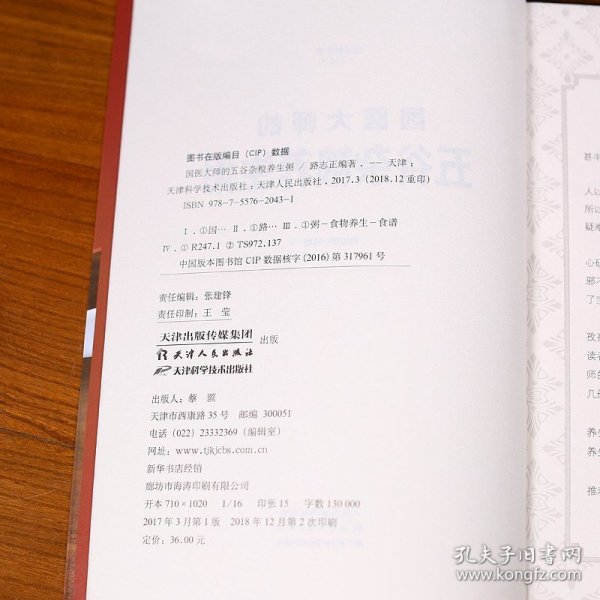 图书在版编目（CIP）数据
国医大师的五谷杂粮养生粥 / 路志正编著 . -- 天津：
天津科学技术出版社：天津人民出版社，2017.3（2018.12重印）
ISBN 978-7-5576-2043-1
Ⅰ.①国… Ⅱ.①路… Ⅲ.①粥－食物养生－食谱
Ⅳ.① R247.1 ② TS972.137
中国版本图书馆 CIP 数据核字（2016）第 317961 号
责任编辑：张建锋
责任印制：王 莹
天津出版传媒集团
天津人民出版社
天津科学技术出版社
出版
出版人：蔡 颢
天津市西康路 35 号 邮编 300051
电话（022）23332369（编辑室）
网址：www.tjkjcbs.com.cn
新华书店经销
廊坊市海涛印刷有限公司
开本 710×1020 1/16 印张 15 字数 130 000
2017 年 3 月第 1 版 2018 年 12 月第 2 次印刷
定价：36.00 元
甚
人以
所以
疑难
心研
邪不
了宝
孜孜
读者
师的
几册
养生
养生
推荐
孔夫子旧书网
www.kongfz.com